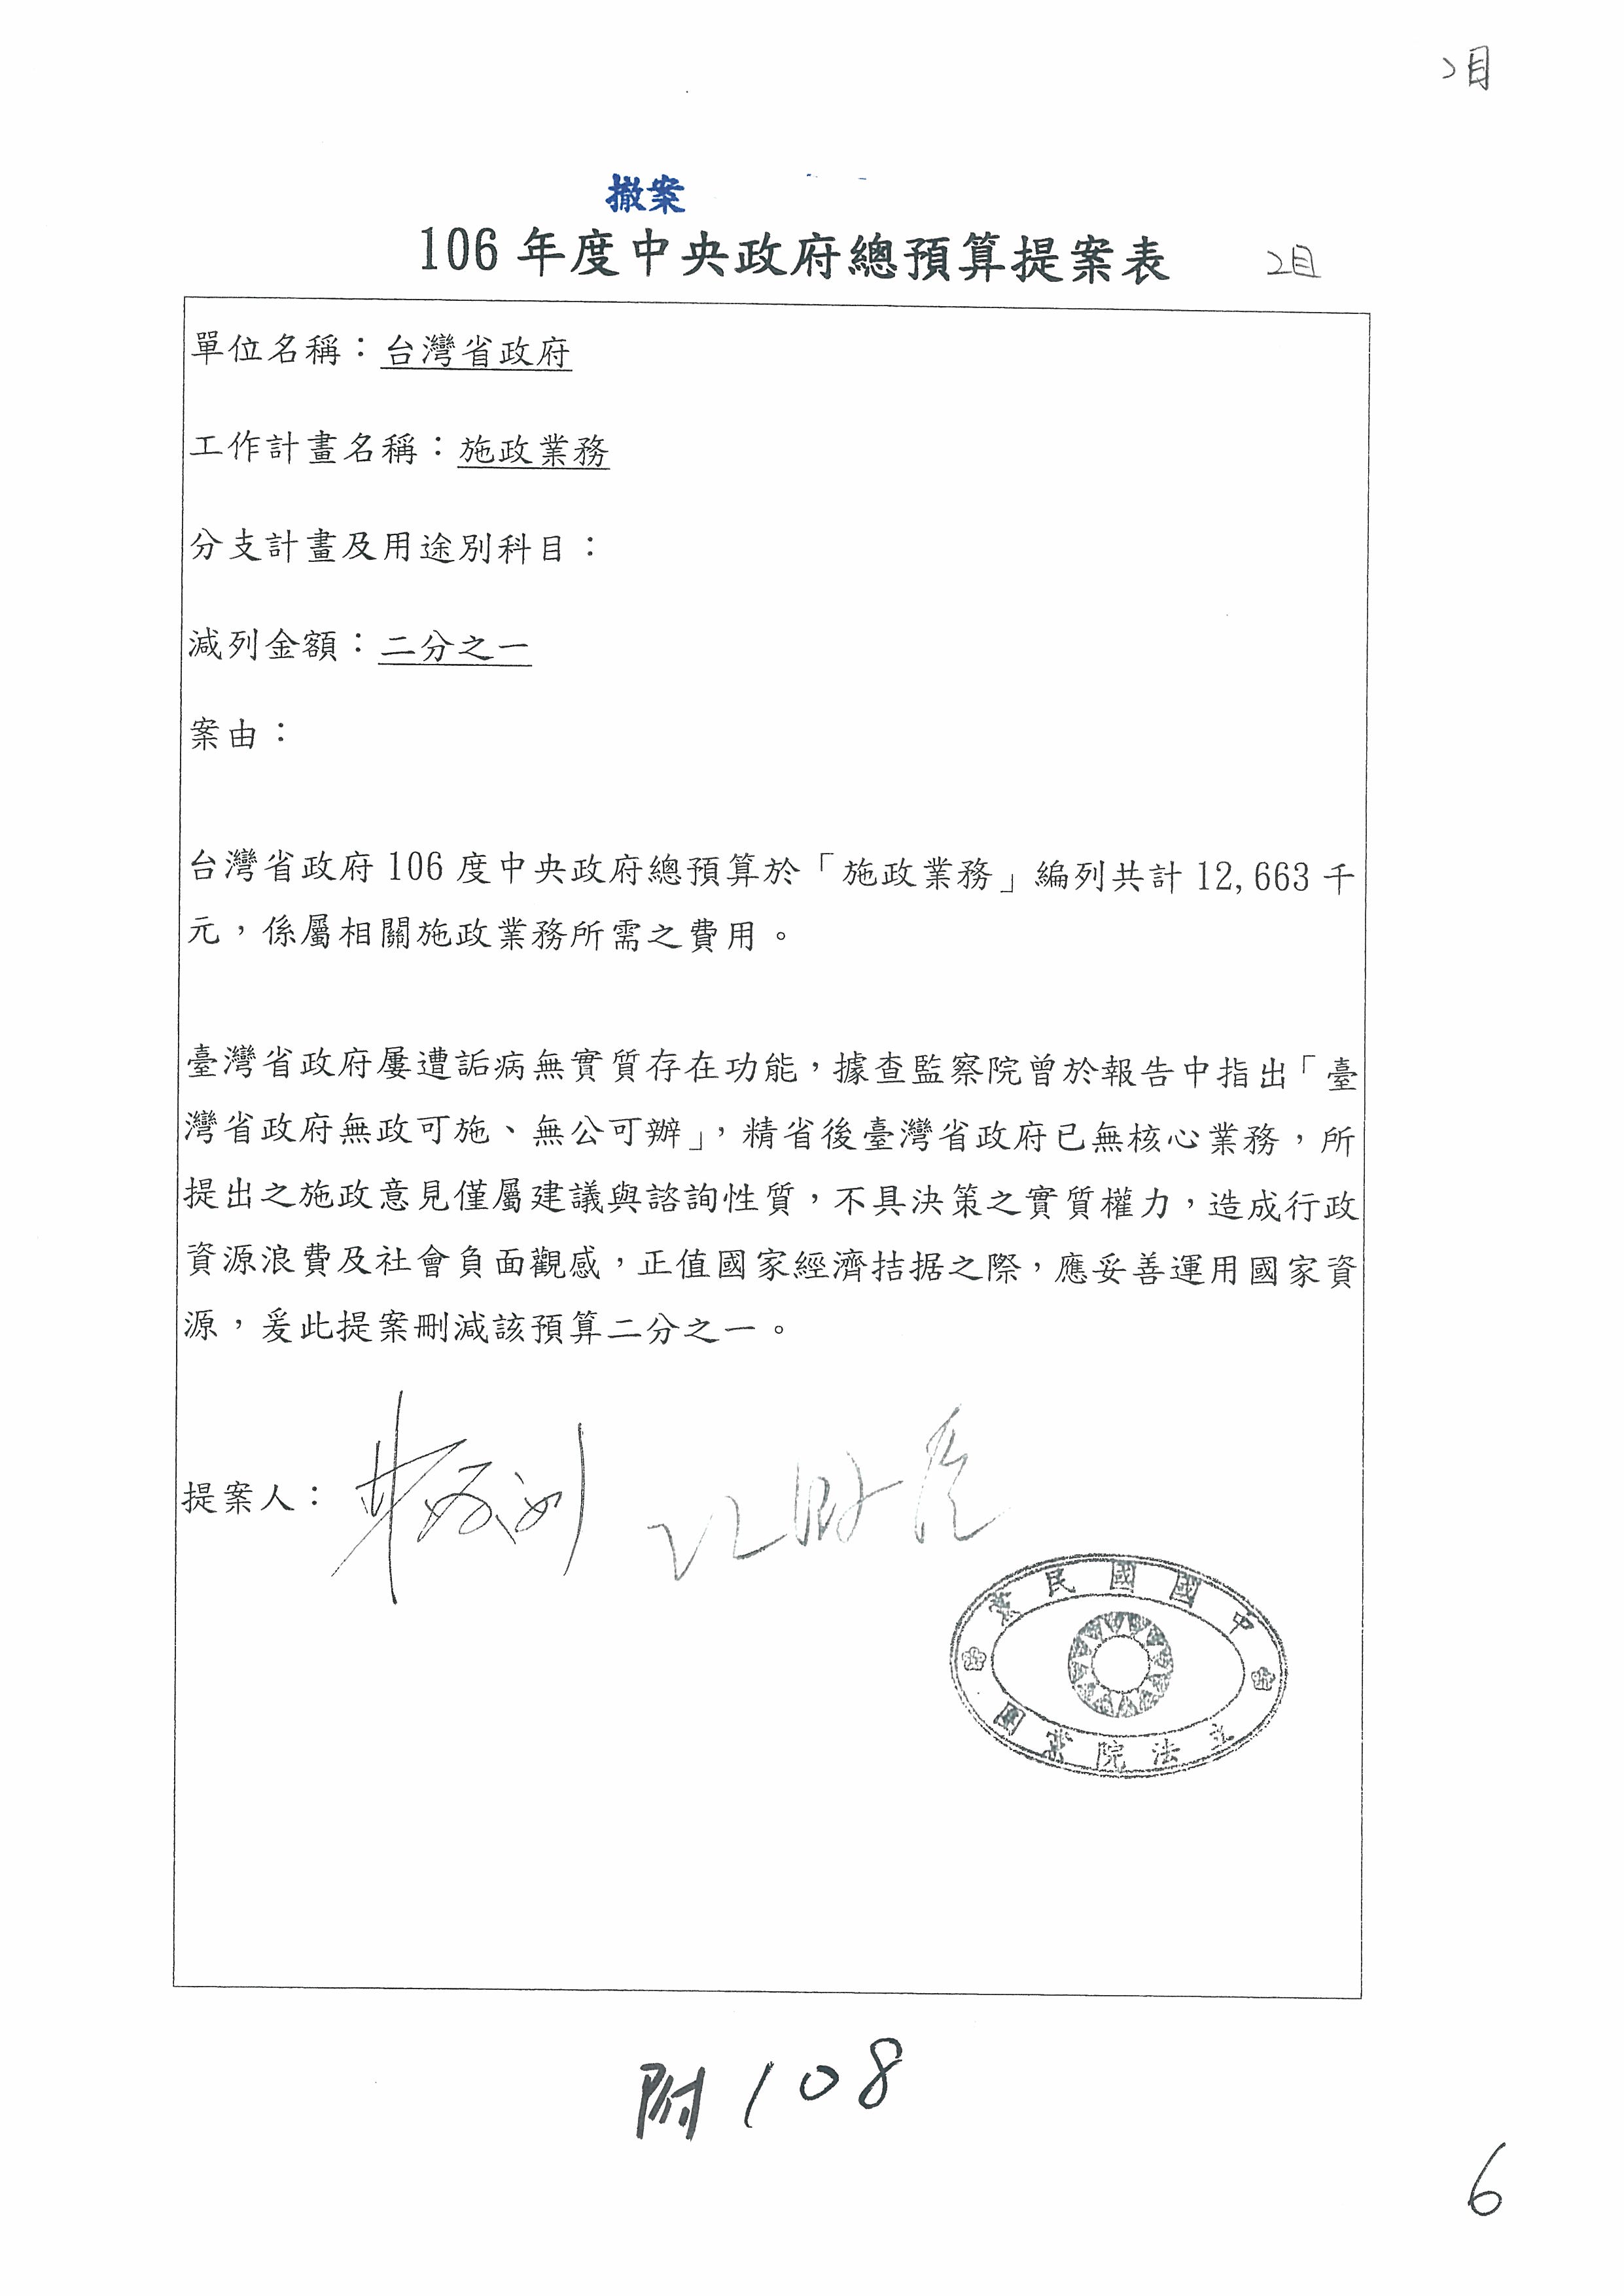 2目
撤案
106年度中央政府總預算提案表
2目
單位名稱：台灣省政府
工作計畫名稱：施政業務
分支計畫及用途別科目：
減列金額：二分之一
案由：
台灣省政府106度中央政府總預算於「施政業務」編列共計12,663千
元，係屬相關施政業務所需之費用。
臺灣省政府屢遭詬病無實質存在功能，據查監察院曾於報告中指出「臺
灣省政府無政可施、無公可辦」，精省後臺灣省政府已無核心業務，所
提出之施政意見僅屬建議與諮詢性質，不具決策之實質權力，造成行政
資源浪費及社會負面觀感，正值國家經濟拮据之際，應妥善運用國家資
源，爰此提案刪減該預算二分之一。
提案人：
中國國民黨
立法院黨團
附108
6